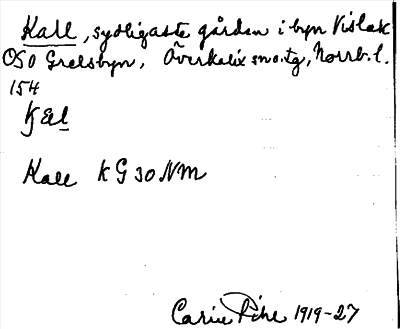 Kall, sydligaste gården i byn Vislak
OSO Grelsbyn, Överkalix sn o. tg, Norrb. l.
154
Kall KG 30 NM
Carin Pihl 1919-27